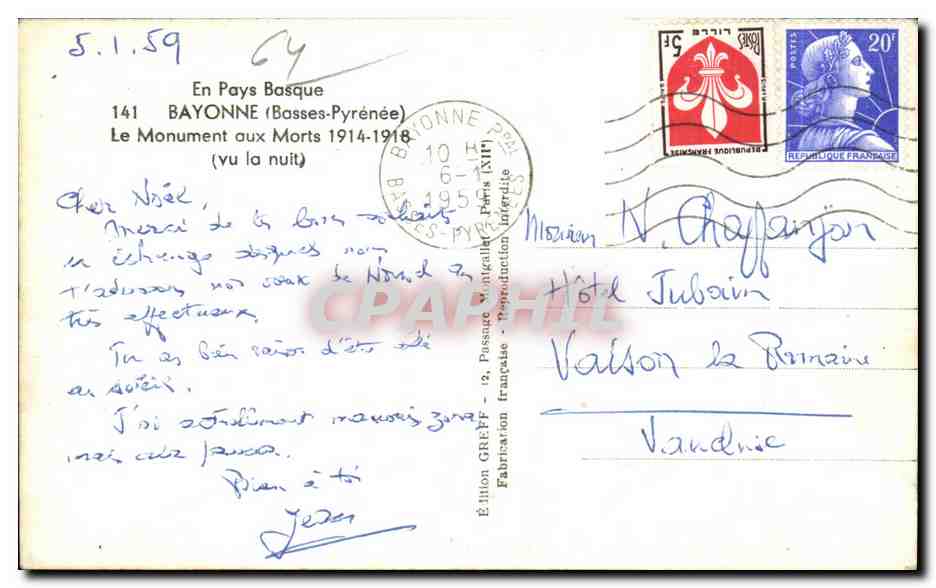 5.1.59
64
En Pays Basque
141 BAYONNE (Basses-Pyrénée)
Le Monument aux Morts 1914-1918
(vu la nuit)
Cher Noël,
Merci de tes bons souhaits
en échange desquels nous
t'adressons nos vœux de Nouvel An
très affectueux.
Tu as bien raison d'être allé
au soleil.
J'ai actuellement mauvais
mais ça passera.
Bien à toi
Jean
BAYONNE Pᵖᵃˡ
10 H
6-1
1959
BASSES-PYRENEES
Édition GREFF - 12, Passage Montgallet - Paris (XIIᵉ)
Fabrication française - Reproduction interdite
POSTES
LILLE
5F
REPUBLIQUE FRANÇAISE
POSTES
20F
REPUBLIQUE FRANÇAISE
Monsieur N. Chaffanjon
Hôtel Jubain
Vaison la Romaine
Vaucluse
CPAPHIL